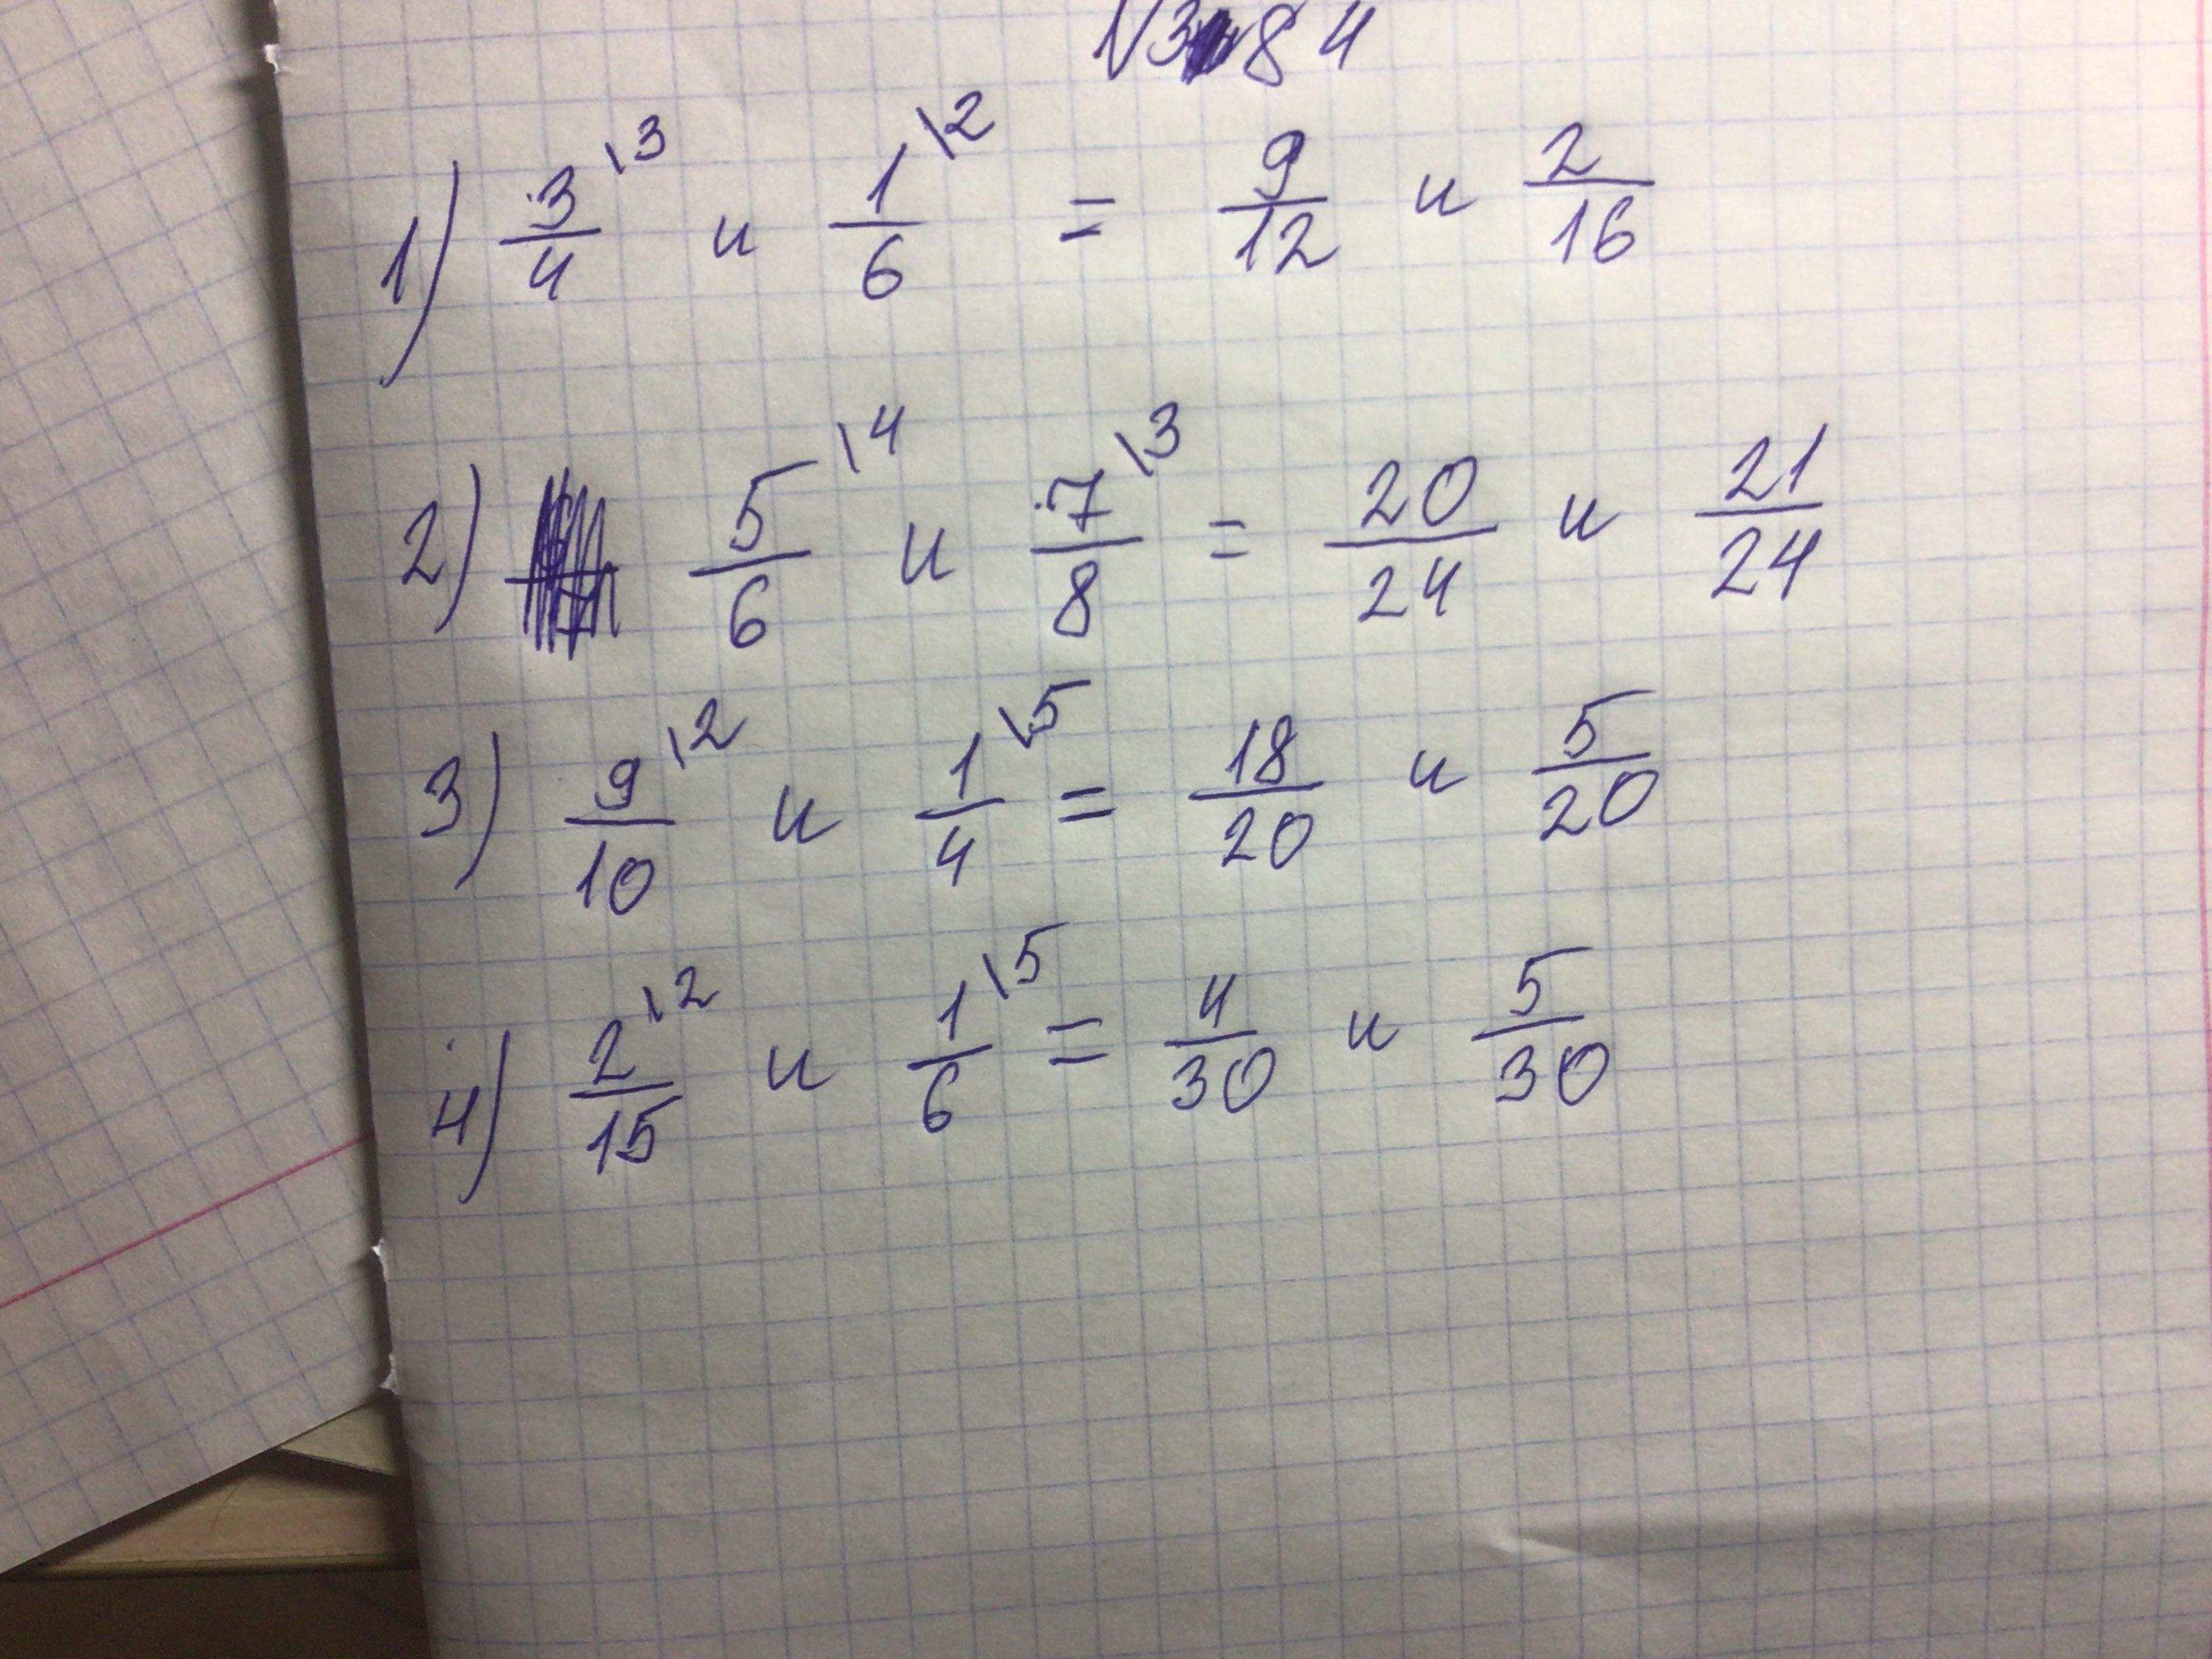 №384
1) 3/4 \3 и 1/6 \2 = 9/12 и 2/16
2) 5/6 \4 и 7/8 \3 = 20/24 и 21/24
3) 9/10 \2 и 1/4 \5 = 18/20 и 5/20
4) 2/15 \2 и 1/6 \5 = 4/30 и 5/30